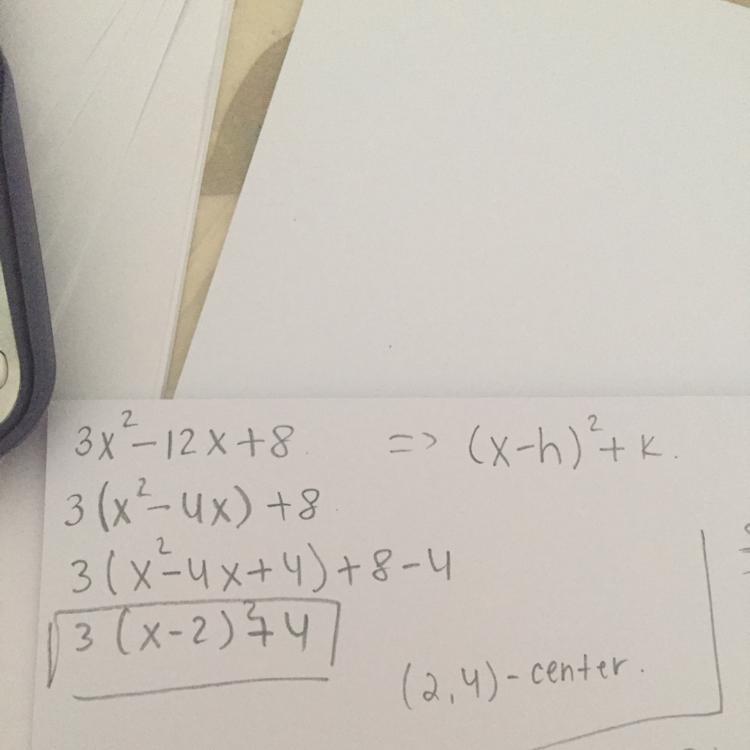 3x²-12x+8 => (x-h)²+k.
3(x²-4x)+8
3(x²-4x+4)+8-4
3(x-2)²+4
(2,4)-center.